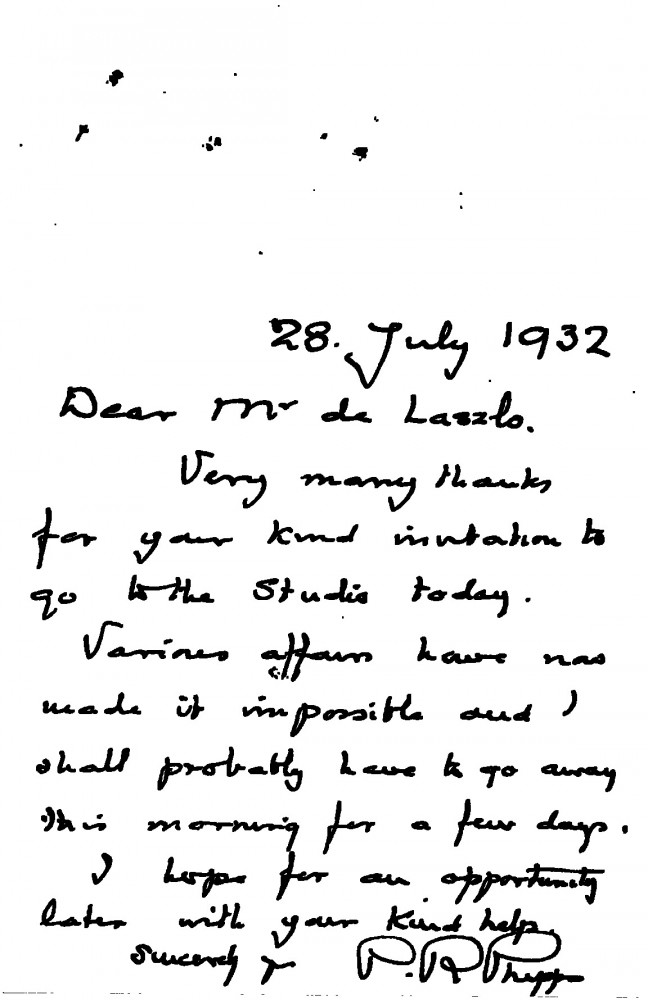 28. July 1932
Dear Mr de Laszlo.
Very many thanks
for your kind invitation to
go to the Studio today.
Various affairs have now
made it impossible and I
shall probably have to go away
this morning for a few days.
I hope for an opportunity
later with your kind help.
Sincerely yr P. R. Phipps